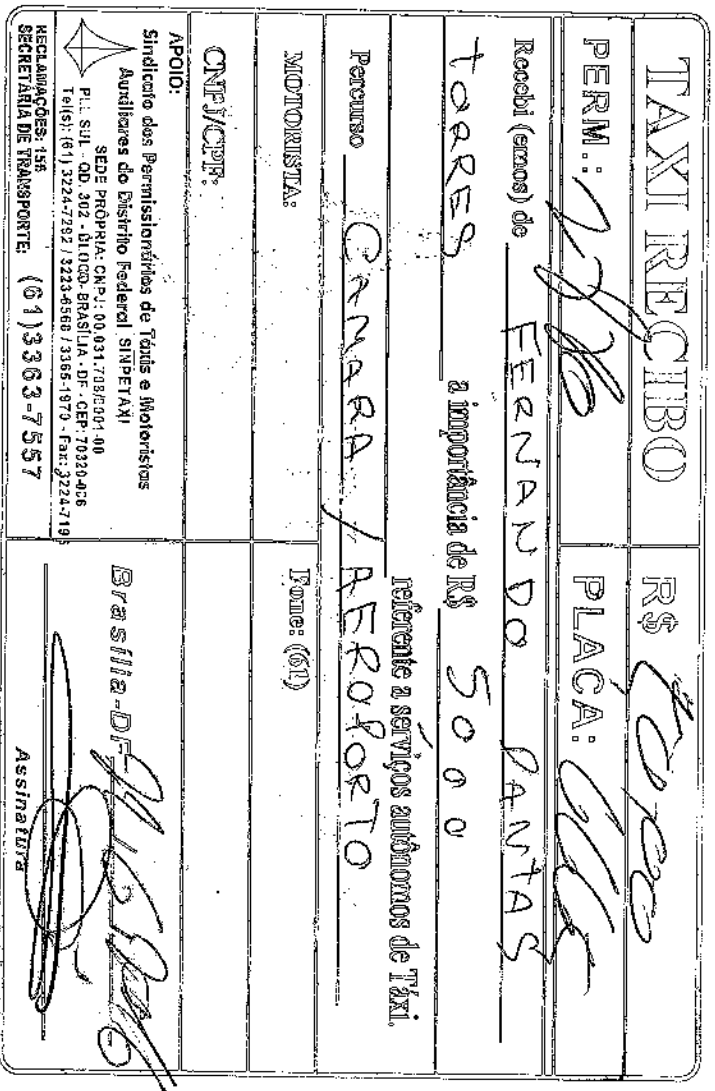 TAXI RECIBO
R$
PERM.:
PLACA:
Recebi (emos) de FERNANDO DANTAS
TORRES a importância de R$ 50 00
referente a serviços autônomos de Táxi.
Percurso CAMARA / AEROPORTO
MOTORISTA:
Fone: (61)
CNPJ/CPF:
APOIO:
Sindicato dos Permissionários de Táxis e Motoristas
Auxiliares do Distrito Federal SINPETAXI
SEDE PRÓPRIA: CNPJ: 00.031.708/0001-00
QD. 302 - BRASÍLIA - DF - CEP: 70320-006
Tel(s): (61) 3224-7292 / 3223-6568 / 3365-1970 - Fax: 3224-719
RECLAMAÇÕES: 156
SECRETÁRIA DE TRANSPORTE: (61)3363-7557
Brasília-DF
Assinatura